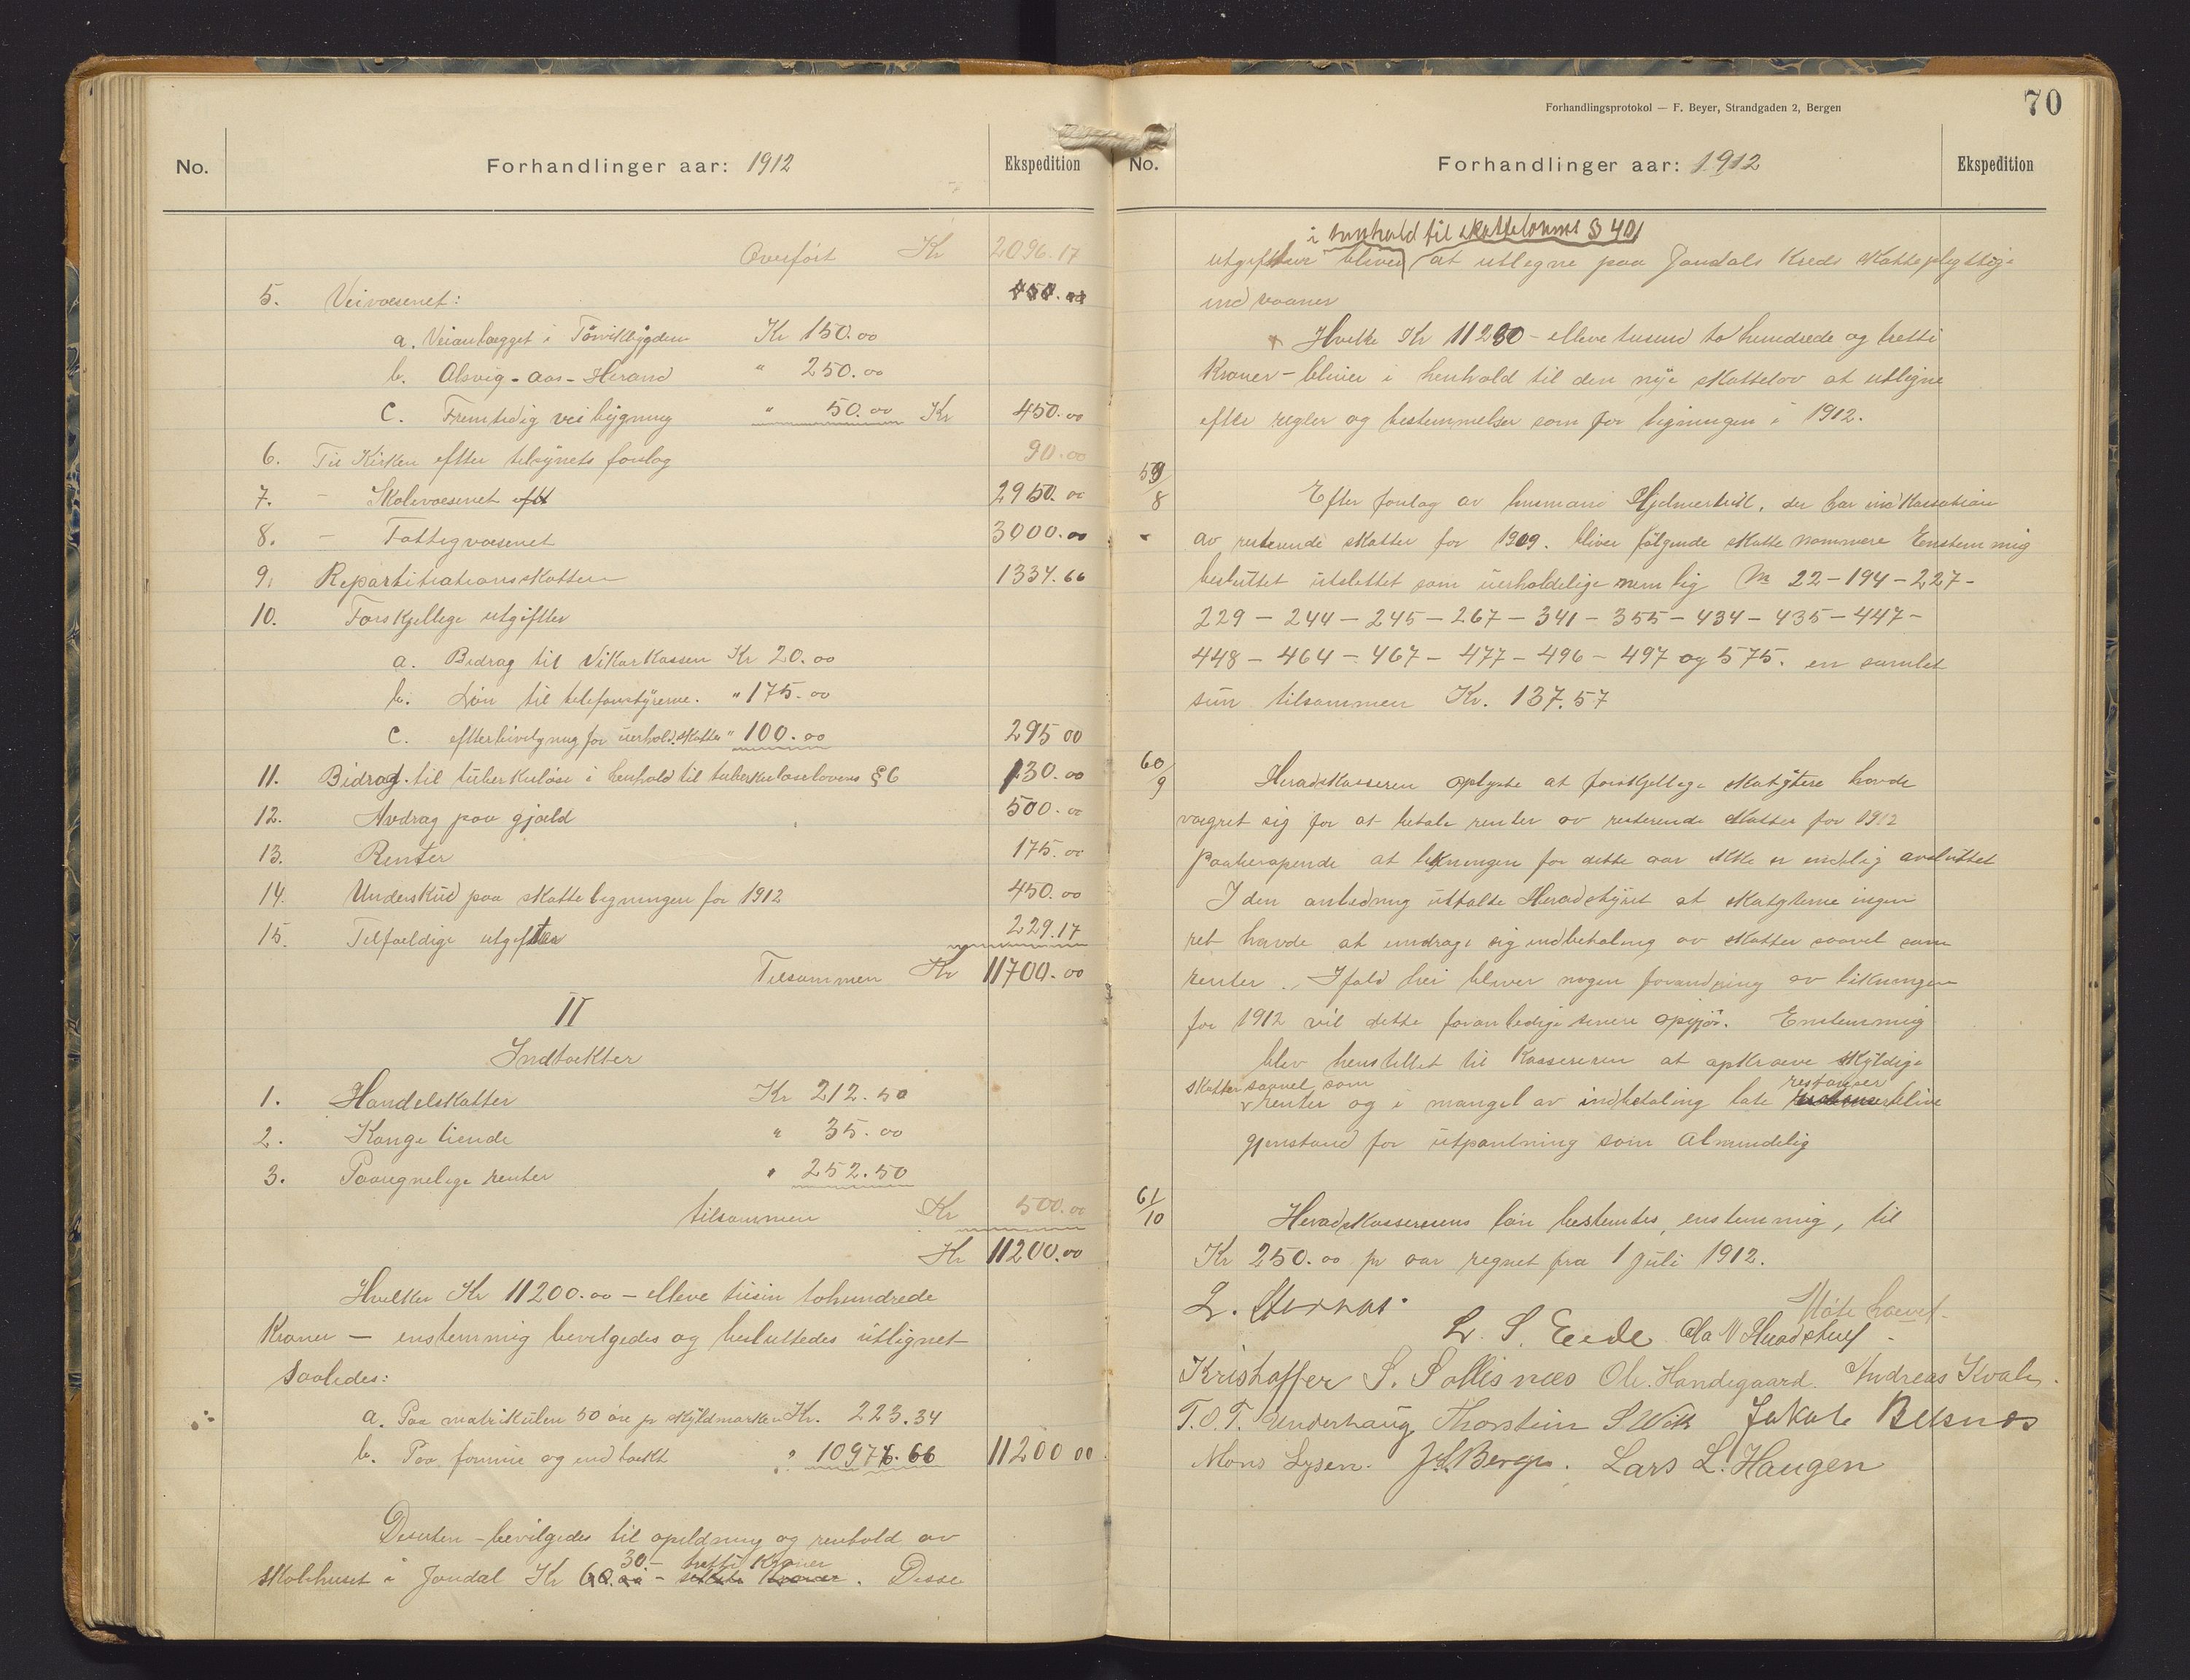 No.
Forhandlinger aar: 1912
Ekspedition
Overført Kr 2096.17
5. Veivæsenet:
a. Veianlægget i Tørvikbygden Kr 150.00
b. Alsvig-Aas-Herand " 250.00
c. Fremtidig veibygning " 50.00 Kr 450.00
6. Til Kirken efter tilsynets forslag 90.00
7. - Skolevæsenet 2950.00
8. - Fattigvæsenet 3000.00
9. Repartitiationsskatten 1334.66
10. Forskjellige utgifter
a. Bidrag til Vikarkassen Kr 20.00
b. Løn til telefonstyrerne. " 175.00
c. efterbevilgning for uerhold. skatter " 100.00 295 00
11. Bidrag til tuberkuløse i henhold til tuberkuloselovens § 6 130.00
12. Avdrag paa gjæld 500.00
13. Renter 175.00
14. Underskud paa skatteligningen for 1912 450.00
15. Tilfældige utgifter 229.17
Tilsammen Kr 11700.00
II
Indtækter
1. Handelskatter Kr 212.50
2. Konge tiende " 35.00
3. Paaregnelige renter " 252.50
tilsammen Kr 500.00
Kr 11200.00
Hvilke Kr 11200.00 - elleve tusin tohundrede
Kroner - enstemmig bevilgedes og besluttedes utlignet
saaledes:
a. Paa matrikulen 50 øre pr skyldmarken Kr. 223.34
b. Paa formue og indtækt " 10976.66 11200 00
Desuten - bevilgedes til opildning og renhold av
30 - tretti Kroner
skolehuset i Jondal Kr 60.00 - . Disse
Forhandlingsprotokol — F. Beyer, Strandgaden 2, Bergen
70
No.
Forhandlinger aar: 1912
Ekspedition
i henhold til skattelovens § 40
utgifter bliver at utlegne paa Jondals Kreds skattepligtige
indvaaner
Hvilke Kr 11230 - elleve tusind to hundrede og tretti
Kroner - bliver i henhold til den nye skattelov at utligne
efter regler og bestemmelser som for ligningen i 1912.
59/8
Efter forslag av lensmand Hjelmervik, der har indkassation
av resterende skatter for 1909. bliver følgende skatte nommere Enstemmig
besluttet utslettet som uerholdelige nemlig No 22-194-227-
229-244-245-267-341-355-434-435-447-
448-464-467-477-496-497 og 575. en samlet
sum tilsammen Kr. 137.57
60/9
Heradskasseren oplyste at forskjellige skatytere havde
vægret sig for at betale renter av resterende skatter for 1912
Paaberopende at likningen for dette aar ikke er endelig avsluttet
I den anledning uttalte Heradstyret at skatyterne ingen
ret havde at undrage sig indbetaling av skatter saavel som
renter. Ifald her bliver nogen forandring av likningen
for 1912 vil dette foranledige senere opgjør. Enstemmig
blev henstillet til Kassereren at opkræve skyldige
skatter saavel som
renter og i mangel av indbetaling late restancer blive
gjenstand for utpantning som almindelig
61/10
Heradskassererens løn bestemtes, enstemmig, til
Kr 250.00 pr aar regnet fra 1 juli 1912.
Møte hævet.
L. S. Eide Ola N Huastuf
Kristoffer S. Sollisnæs Ole. Handegaard. Andreas Kvale.
T. O. T. Underhaug Thorstein S Vik Jakob Belsnes
Mons Lysen. J. S. Berge. Lars L. Haugen